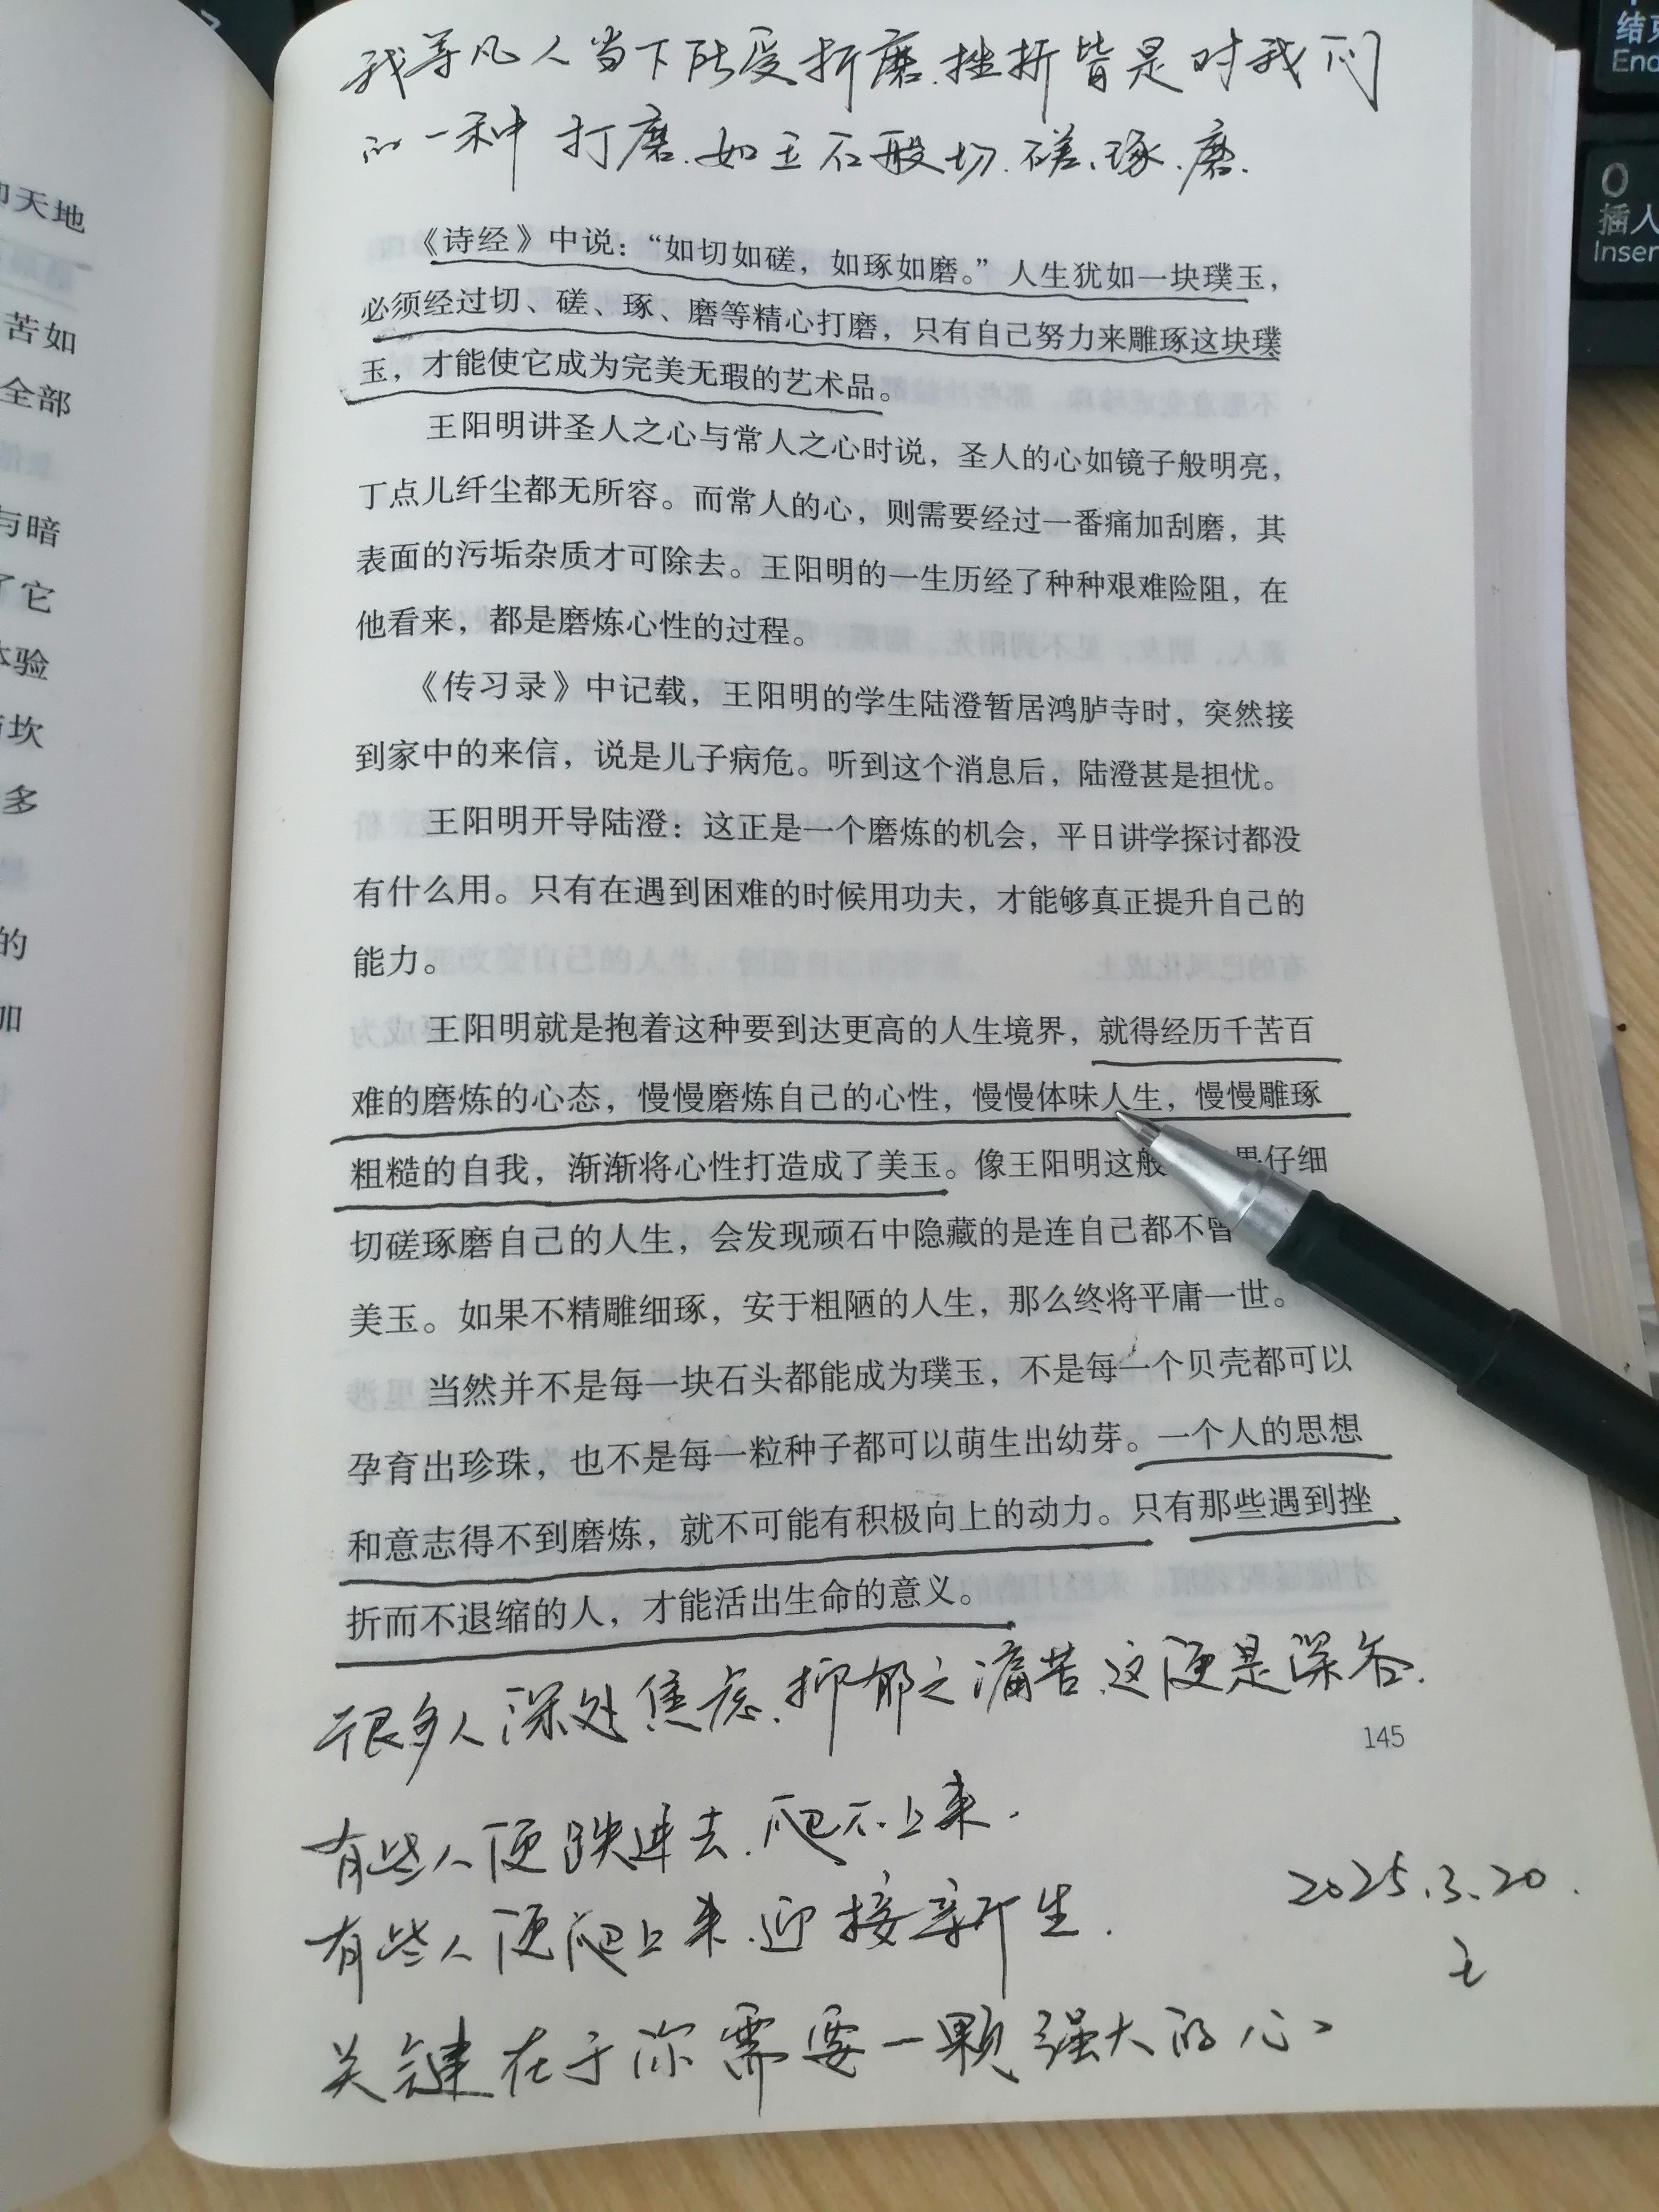 我等凡人当下所受折磨.挫折皆是对我们
的一种打磨.如玉石般切.磋.琢.磨.
《诗经》中说：“如切如磋，如琢如磨。”人生犹如一块璞玉，
必须经过切、磋、琢、磨等精心打磨，只有自己努力来雕琢这块璞
玉，才能使它成为完美无瑕的艺术品。
王阳明讲圣人之心与常人之心时说，圣人的心如镜子般明亮，
丁点儿纤尘都无所容。而常人的心，则需要经过一番痛加刮磨，其
表面的污垢杂质才可除去。王阳明的一生历经了种种艰难险阻，在
他看来，都是磨炼心性的过程。
《传习录》中记载，王阳明的学生陆澄暂居鸿胪寺时，突然接
到家中的来信，说是儿子病危。听到这个消息后，陆澄甚是担忧。
王阳明开导陆澄：这正是一个磨炼的机会，平日讲学探讨都没
有什么用。只有在遇到困难的时候用功夫，才能够真正提升自己的
能力。
王阳明就是抱着这种要到达更高的人生境界，就得经历千苦百
难的磨炼的心态，慢慢磨炼自己的心性，慢慢体味人生，慢慢雕琢
粗糙的自我，渐渐将心性打造成了美玉。像王阳明这般 果仔细
切磋琢磨自己的人生，会发现顽石中隐藏的是连自己都不曾
美玉。如果不精雕细琢，安于粗陋的人生，那么终将平庸一世。
当然并不是每一块石头都能成为璞玉，不是每一个贝壳都可以
孕育出珍珠，也不是每一粒种子都可以萌生出幼芽。一个人的思想
和意志得不到磨炼，就不可能有积极向上的动力。只有那些遇到挫
折而不退缩的人，才能活出生命的意义。
很多人深处焦虑.抑郁之痛苦.这便是深谷.
145
有些人便跌进去.爬不上来.
有些人便爬上来.迎接新生.
2025.3.20.
关键在于你需要一颗强大的心
和天地
苦如
全部
与暗
了它
体验
坎
多
的
加
结束
End
0
插入
Insert